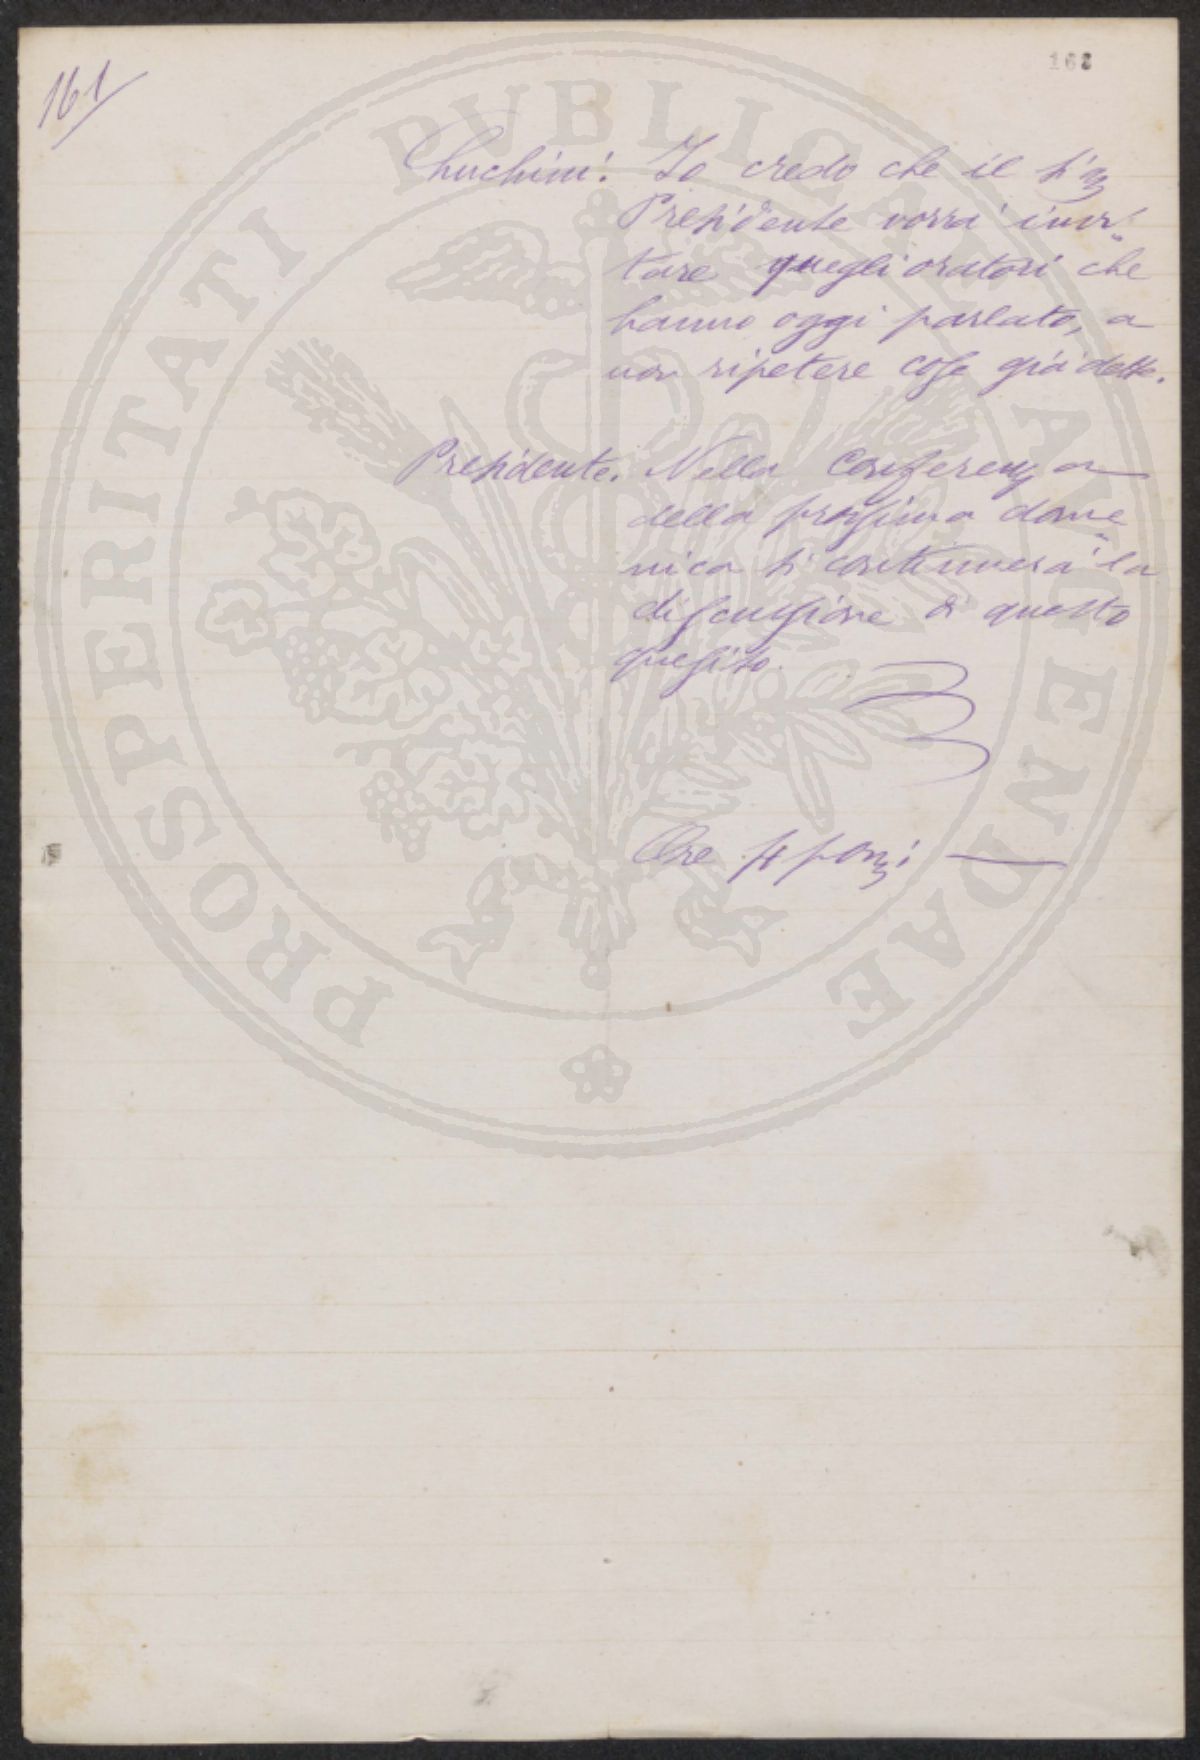 161
162
Luchini: Io credo che il Sig
Presidente vorrà invi-
tare quegli oratori che
hanno oggi parlato, a
non ripetere cose già dette.
Presidente. Nella Conferenza
della prossima dome-
nica si continuerà la
discussione di questo
quesito.
Ore 4 pom;
PROSPERITATI PVBLICAE AVGENDAE